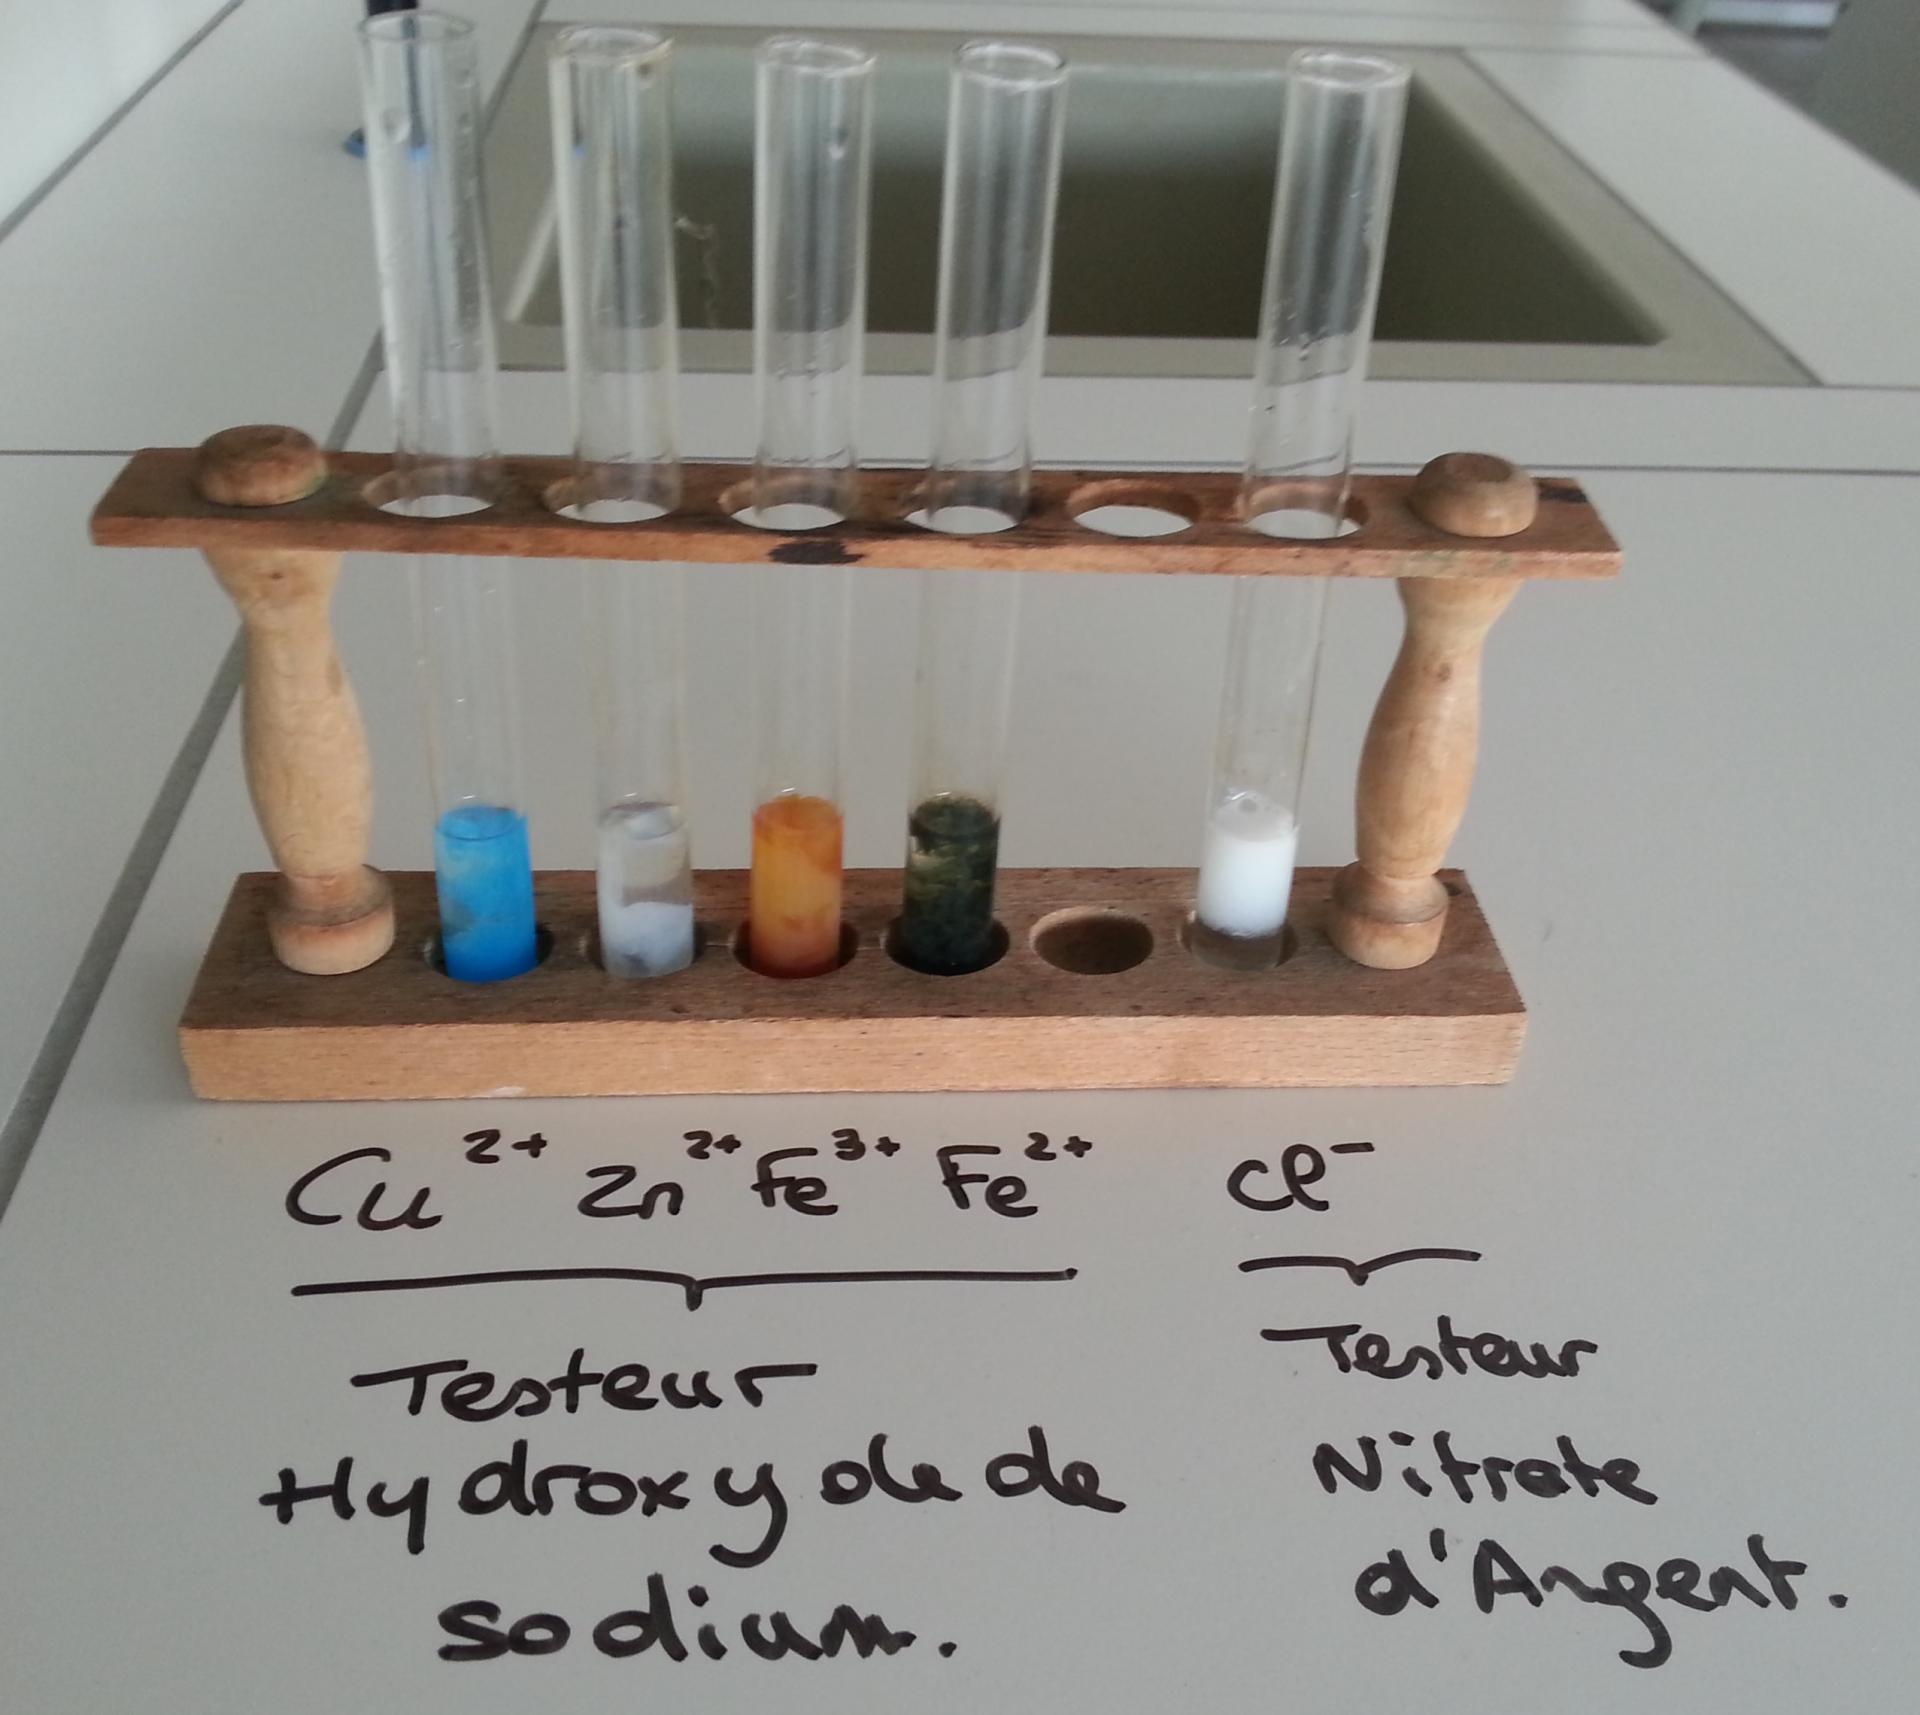 Cu²⁺ Zn²⁺ Fe³⁺ Fe²⁺ Cl⁻
Testeur
Hydroxyde de
sodium.
Testeur
Nitrate
d'Argent.